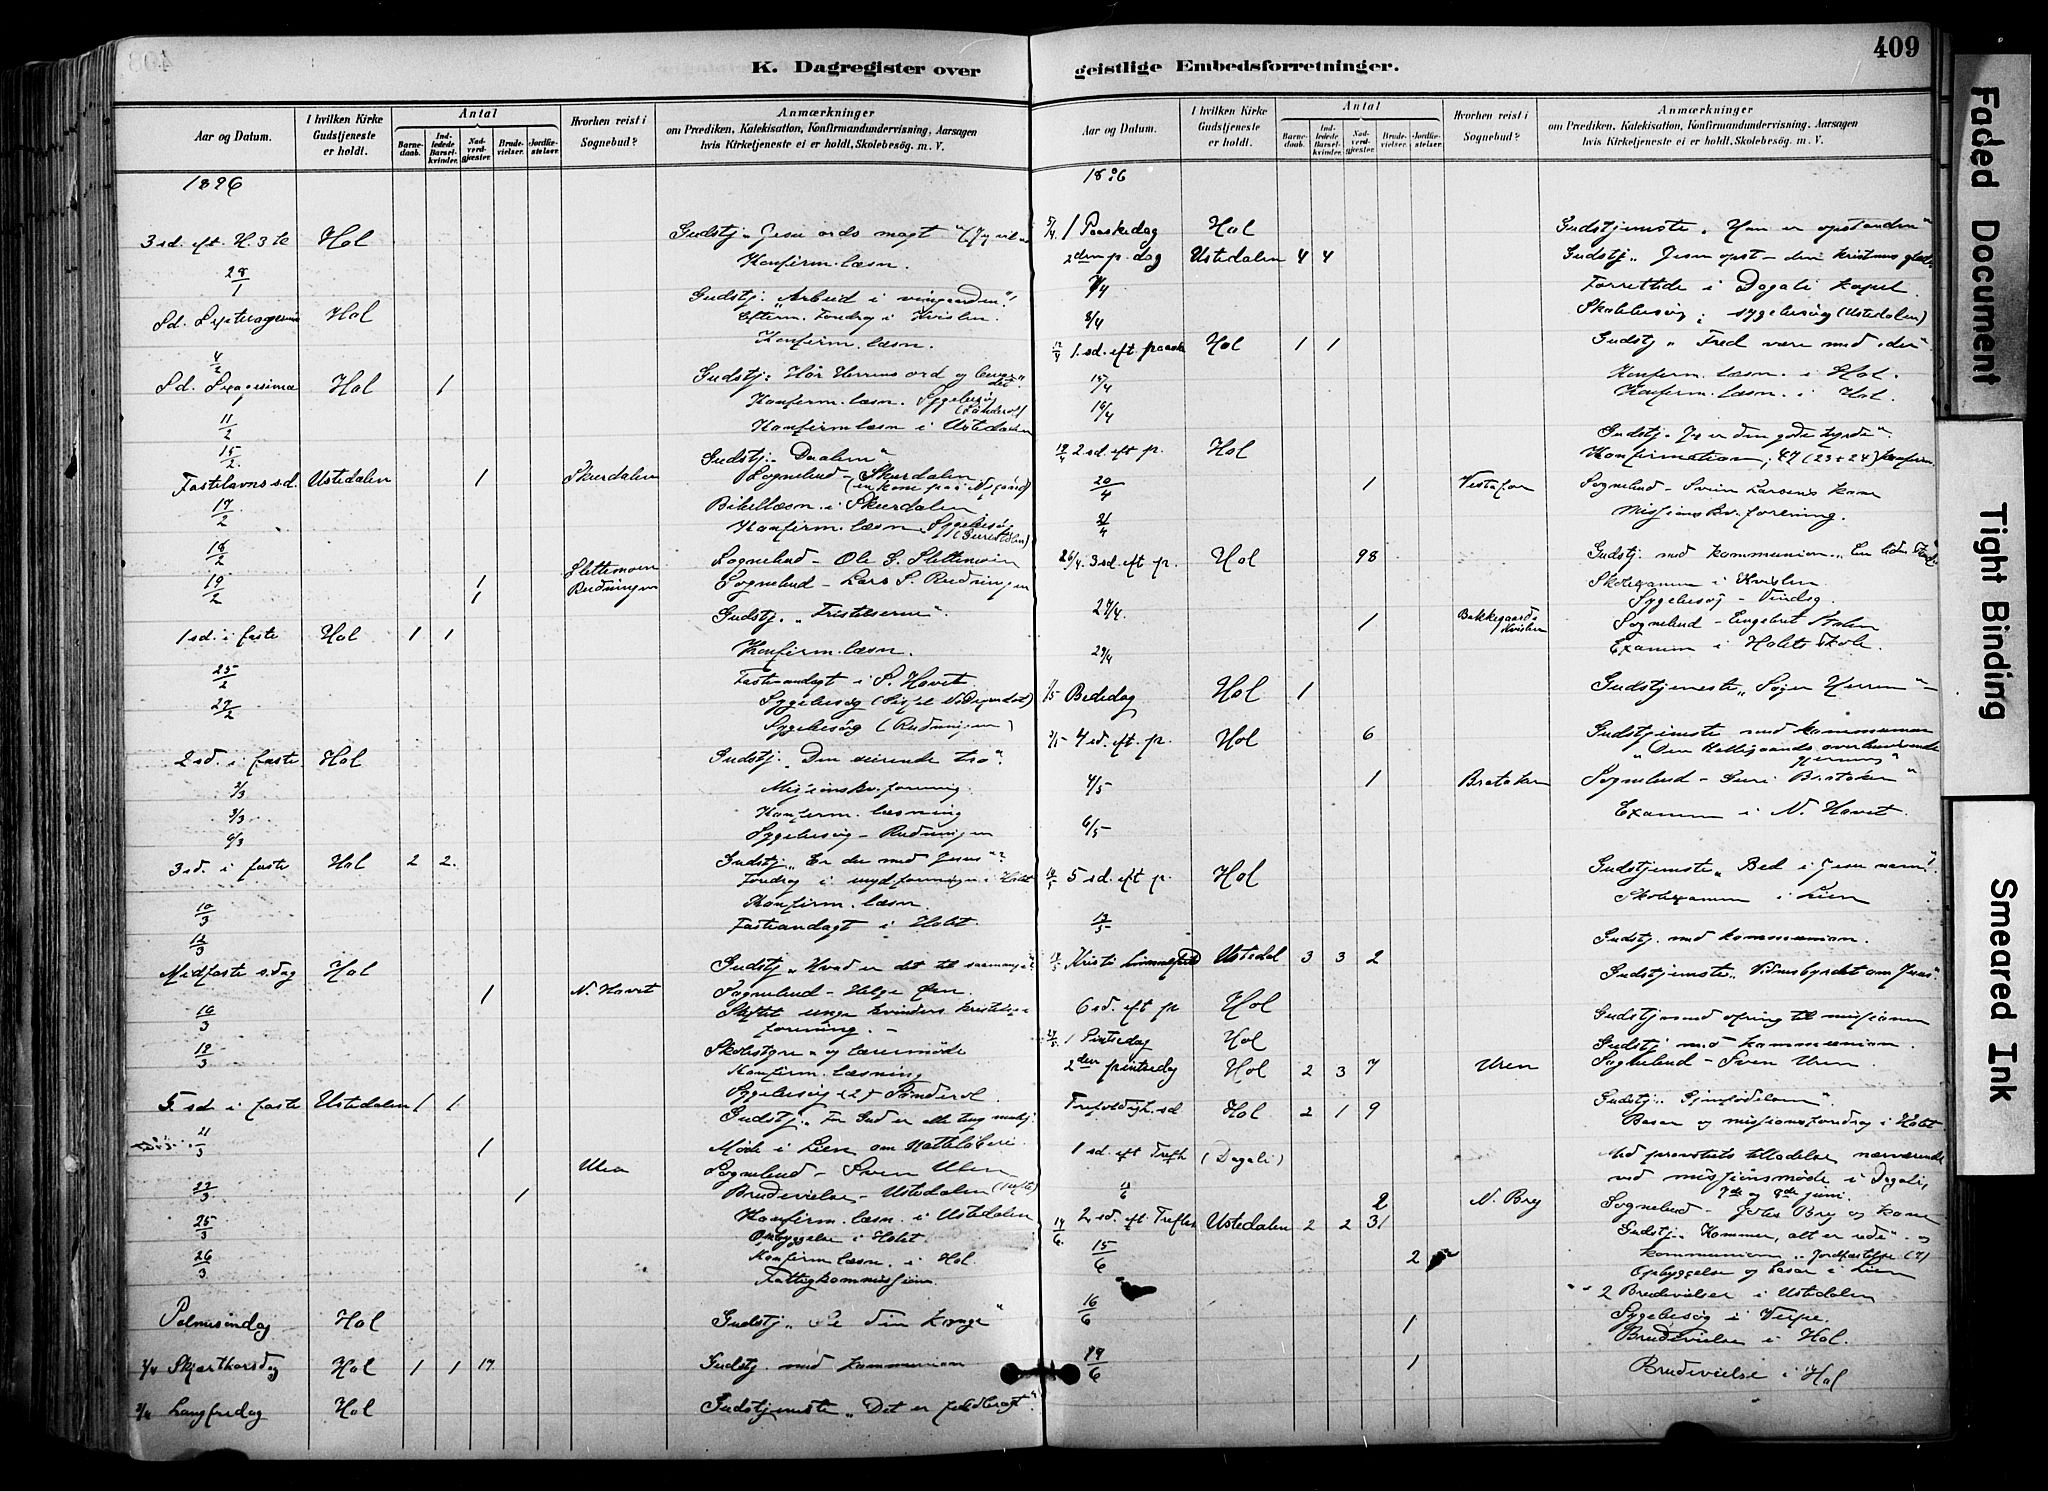 409
K. Dagregister over geistlige Embedsforretninger.
Aar og Datum.
I hvilken Kirke Gudstjeneste er holdt.
Antal
Barnedaab.
Indledede Barselkvinder.
Nadverdgjæster.
Brudevielser.
Jordfæstelser.
Hvorhen reist i Sognebud?
Anmærkninger
om Prædiken, Katekisation, Konfirmandundervisning, Aarsagen
hvis Kirketjeneste ei er holdt, Skolebesøg. m. V.
1896
3 sd. eft. H. 3 k Hol Gudstj. "Jesu ords magt"
28/1 Konfirm. læsn.
Sd. Septuagesima Hol Gudstj. "Arbeid i vingaarden"!
Efterm. Foredrag i Kvislen.
4/2 Konfirm. læsn.
Sd. Sexagesima Hol 1 Gudstj. Hør Herrens ord og
Konfirm. læsn. Sygebesøg
11/2 Konfirm. læsn i Ustedalen
15/2 Gudstj. "Daaben"
Fastelavns sd. Ustedalen 1 Skurdalen Sognebud - Skurdalen
17/2 Bibellæsn. i Skurdalen
Konfirm. læsn. Sygebesøg
18/2 Slettemoen Sognebud - Ole G. Slettemoen
19/2 1 1 Rudningen Sognebud - Lars S. Rudningen
Gudstj. "Fristelserne".
1 sd. i faste Hol 1 1
Konfirm. læsn.
25/2 Fasteandagt i S. Hovet.
27/2 Sygebesøg
Sygebesøg (Rudningen)
2 sd. i faste Hol Gudstj. "Den seirende tro".
2/3 Missionskv. forening
3/3 Konfirm. læsning
6/3 Sygebesøg - Rudningen
3 sd. i faste Hol 2 2. Gudstj. "Er du med Jesus"?
Foredrag i ungd. foreningen i Holet
10/3 Konfirm. læsn.
12/3 Fasteandagt i Holet.
Midfaste s.dag Hol Gudstj. "Hvad er det til saa mange"?
1 N. Hovet Sognebud - Helge
16/3 Stiftet unge kvinders kristelige
forening. -
18/3 Skolestyre- og lærermøde
Konfirm. læsning
Sygebesøg i Sønderol.
5 sd. i faste Ustedalen 1 1 Gudstj. "For Gud er alle ting mulig"
21/3 1 Møde i Lien om
Sognebud - Sven Uren
22/3 1 Brudevielse - Ustedalen
25/3 Konfirm. læsn. i Ustedalen
Opbyggelse i Holet
26/3 Konfirm. læsn. i Hol.
Fattigkommission.
Palmesøndag Hol Gudstj. "Se din konge"
2/4 Skjærthorsdag Hol 1 1 17 Gudstj. med kommunion
3/4 Langfredag Hol Gudstjeneste "Det er fuldbragt".
Aar og Datum.
I hvilken Kirke Gudstjeneste er holdt.
Antal
Barnedaab.
Indledede Barselkvinder.
Nadverdgjæster.
Brudevielser.
Jordfæstelser.
Hvorhen reist i Sognebud?
Anmærkninger
om Prædiken, Katekisation, Konfirmandundervisning, Aarsagen
hvis Kirketjeneste ei er holdt, Skolebesøg. m. V.
1896
5/4 1 Paaskedag Hol Gudstjeneste "Han er opstanden"
2den p. dag Ustedalen 4 4 Gudstj. "Jesu opst - den kristnes
7/4 Forrettede i Dagali kapel.
8/4 Skolebesøg; sygebesøg (Ustedalen)
12/4 1. sd. eft. paaske Hol 1 1 Gudstj. "Fred være med eder"
15/4 Konfirm. læsn. i Hol.
16/4 Konfirm. læsn. i Hol.
Gudstj. "Jeg er den gode hyrde".
19/4 2 sd. eft p. Hol Konfirmation, 47 (23+24) konfirm.
20/4 1 Sognebud - Svein Larsens kone
21/4 Missionskv. forening.
26/4 3 sd. eft p. Hol 98 Gudstj. med kommunion. "En liden
Skoleexamen i Kvislen
Sygebesøg -
27/4 1 Bakkegaard i Kvislen Sognebud - Engebret
29/4 Examen i Holets skole.
1/5 Bededag Hol 1 Gudstjeneste "Søger Herren"
3/5 4 sd. eft. p. Hol 6 Gudstjeneste med kommunion
"Den Helligaands overbevisende gjerning"
4/5 1 Brataker Sognebud - Guri Brataker
6/5 Examen i N. Hovet.
10/5 5 sd. eft p. Hol Gudstjeneste "Bed i Jesu navn"!
12/5 Skoleexamen i Lien
Gudstj. med kommunion.
14/5 Kristi himmelfd. Ustedal 3 3 2
Gudstjeneste "Vidnesbyrdet om Jesus".
6 sd. eft p. Hol
Gudstj. med ofring til missionen
24/5 1 Pintsedag Hol Gudstj. med kommunion.
2den pintsedag Hol 2 3 7 Uren Sognebud - Sven Uren
Trefoldigh. sd Hol 2 1 9 Gudstj. "Gjenfødelsen".
Basar og missionsforedrag i Holet
1 sd. eft Trefh (Dagali) Med provstens tilladelse nærværende
ved missionsmøde i Dagali,
7de og 8de juni.
2 N. Bry Sognebud - Bry og kone
14/6 2. sd. eft. Trefh Ustedalen 2 2 31 Gudstj. "Kommer, alt er rede" og
15/6 2 kommunion. Jordfæstelse (2)
Opbyggelse og basar i Lien
2 Brudevielser i Ustedalen
16/6 1 Sygebesøg i
Brudevielse i Hol.
19/6 1 Brudevielse i Hol
Faded Document
Tight Binding
Smeared Ink